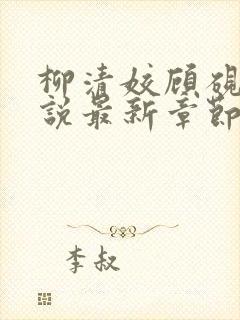 柳清姣顾砚
说最新章节
李叔